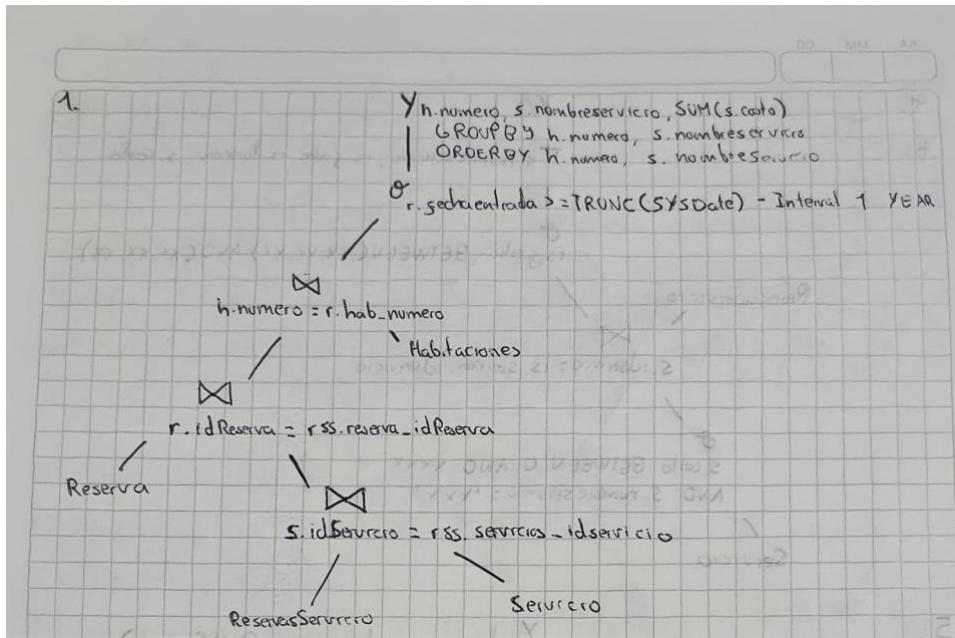 1.
γ h.numero, s.nombreservicio, SUM(s.costo)
GROUPBY h.numero, s.nombreservicio
ORDERBY h.numero, s.nombreservicio
σ
r.fechaentrada >= TRUNC(SYSDate) - Interval 1 YEAR
⋈
h.numero = r.hab_numero
Habitaciones
⋈
r.idReserva = rss.reserva_idReserva
Reserva
⋈
s.idServicio = rss.servicios_idservicio
ReservasServicio
Servicio